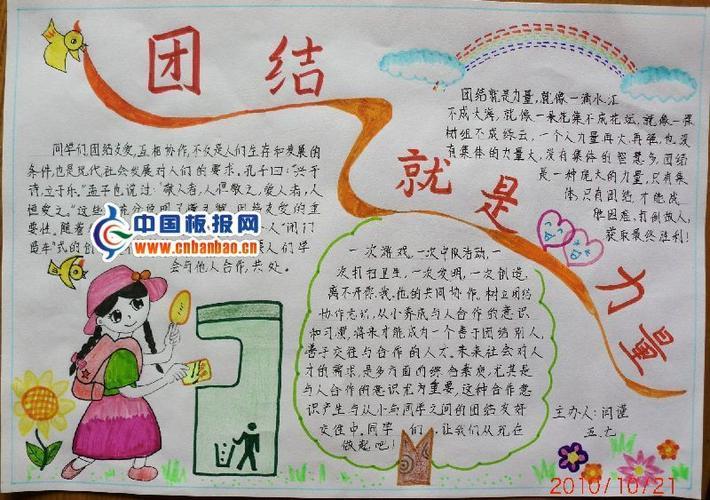 团结就是力量
同学们团结友爱,互相协作,不仅是人们生存和发展的
条件,也是现代社会发展对人们的要求,孔子曰:"兴于
诗,立于礼。"孟子也说过:"敬人者,人恒敬之,爱人者,人
恒爱之。"这些
重
要性。随着
人"闭门
造车"式的创
人们学
会与他人合作,共处。
中国板报网
www.cnbanbao.cn
团结就是力量,就像一滴水,汇
不成大海,就像一朵花集不成花坛,就像一棵
树组不成绿云,一个人力量再大,再强,也没
有集体的力量大,没有集体的智慧多,团结
是一种庞大的力量,只有集
体,只有团结,才能战
胜困难,打倒敌人,
获取最终胜利!
一次游戏,一次中队活动,一
次打扫卫生,一次发明,一次创造,
离不开你,我,他的共同协作。树立团结
协作意识,从小养成与人合作的意识
和习惯,将来才能成为一个善于团结别人,
善于交往与合作的人才。未来社会对人
才的需求,是多方面的综合素质,尤其是
与人合作的意识尤为重要,这种合作意
识产生与从小与同学之间的团结友好
交往中。同学们,让我们从现在
做起吧!
主办人:闫谨
五.七
2010/10/21